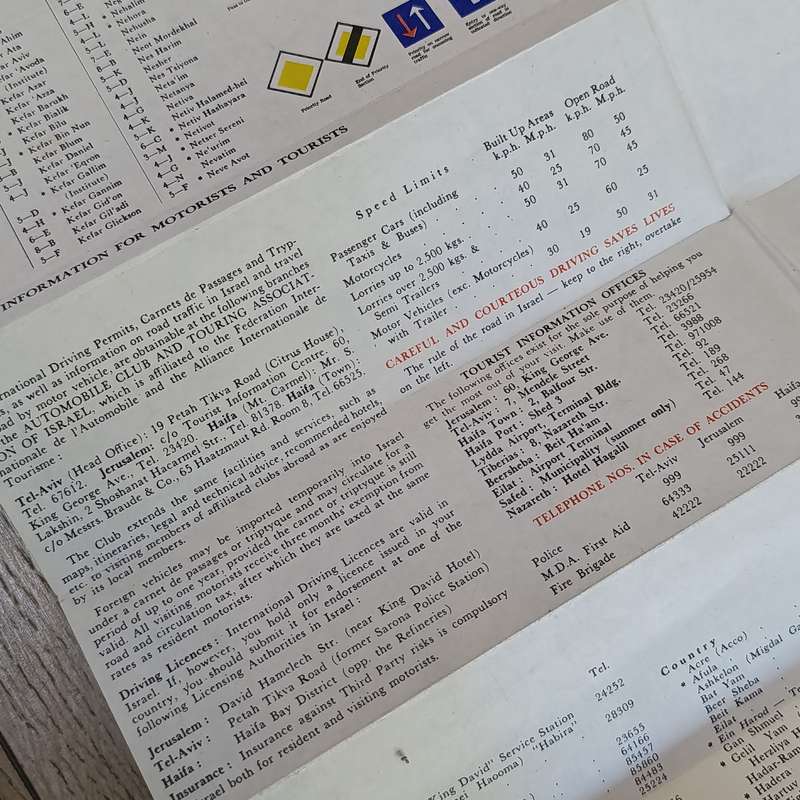 Ahim
Ata
Aviv
'Avoda
(Institute)
Kefar Azar
Kefar 'Azza
Kefar Barukh
Kefar Bialik
Kefar Bilu
Kefar Bin Nun
Kefar Blum
Kefar Daniel
Kefar 'Eqron
Kefar Gallim
(Institute)
Kefar Gannim
Kefar Gid'on
Kefar Gil'adi
Kefar Glickson
Nehalim
Nehora
Nehusha
Neot Mordekhai
Nes Harim
Nesher
Nes Tsiyona
Neta'im
Netanya
Netiva
Netiv Halamed-hei
Netiv Hashayara
Netivot
Neter Sereni
Ne'urim
Nevatim
Neve Avot
Priority Road
End of Priority Section
Priority on narrow road for oncoming traffic
INFORMATION FOR MOTORISTS AND TOURISTS
rnational Driving Permits, Carnets de Passages and Tryp-
s, as well as information on road traffic in Israel and travel
ad by motor vehicle, are obtainable at the following branches
the AUTOMOBILE CLUB AND TOURING ASSOCIAT-
ON OF ISRAEL, which is affiliated to the Federation Inter-
nationale de l'Automobile and the Alliance Internationale de
Tourisme:
Tel-Aviv (Head Office): 19 Petah Tikva Road (Citrus House),
Tel. 67612. Jerusalem: c/o Tourist Information Centre, 60,
King George Ave., Tel. 23420. Haifa (Mt. Carmel): Mr. S.
Lakshin, 2 Shoshanat Hacarmel Str., Tel. 81378. Haifa (Town):
c/o Messrs. Braude & Co., 65 Haatzmaut Rd. Room 8, Tel. 66525.
The Club extends the same facilities and services, such as
maps, itineraries, legal and technical advice, recommended hotels,
etc. to visiting members of affiliated clubs abroad as are enjoyed
by its local members.
Foreign vehicles may be imported temporarily into Israel
under a carnet de passages or triptyque and may circulate for a
period of up to one year, provided the carnet or triptyque is still
valid. All visiting motorists receive three months' exemption from
road and circulation tax, after which they are taxed at the same
rates as resident motorists.
Driving Licences: International Driving Licences are valid in
Israel. If, however, you hold only a licence issued in your
country, you should submit it for endorsement at one of the
following Licensing Authorities in Israel:
Jerusalem: David Hamelech Str. (near King David Hotel)
Tel-Aviv: Petah Tikva Road (former Sarona Police Station)
Haifa: Haifa Bay District (opp. the Refineries)
Insurance: Insurance against Third Party risks is compulsory
Israel both for resident and visiting motorists.
Speed Limits
Built Up Areas Open Road
k.p.h. M.p.h. k.p.h. M.p.h.
Passenger Cars (including
Taxis & Buses) 50 31 80 50
Motorcycles 40 25 70 45
Lorries up to 2,500 kgs. 50 31 70 45
Lorries over 2,500 kgs. &
Semi Trailers 40 25 60 25
Motor Vehicles (exc. Motorcycles)
with Trailer 30 19 50 31
CAREFUL AND COURTEOUS DRIVING SAVES LIVES
The rule of the road in Israel — keep to the right, overtake
on the left.
TOURIST INFORMATION OFFICES
The following offices exist for the sole purpose of helping you
get the most out of your visit. Make use of them.
Jerusalem: 60, King George Ave. Tel. 23420/25954
Tel-Aviv: 7, Mendele Street Tel. 23266
Haifa Town: 2, Balfour Str. Tel. 66521
Haifa Port: Shed 3 Tel. 3988
Lydda Airport, Terminal Bldg. Tel. 971008
Tiberias: 8, Nazareth Str. Tel. 92
Beersheba: Beit Ha'am Tel. 189
Eilat: Airport Terminal Tel. 268
Safed: Municipality (summer only) Tel. 47
Nazareth: Hotel Hagalil Tel. 144
TELEPHONE NOS. IN CASE OF ACCIDENTS
Tel-Aviv Jerusalem Haifa
Police 999 999
M.D.A. First Aid 64333 25111
Fire Brigade 42222 22222
Tel.
24252
28309
King David" Service Station 23655
Haooma) "Habira" 64166
85457
85860
84483
25224
Country
Acre (Acco)
Afula
Ashkelon (Migdal
Bat Yam
Beer Sheba
Beit Kama
Eilat
Ein Harod
Gan Shmuel
Gelil Yam
Herzliya
Hadar-Ram
Hadera
Hartuv